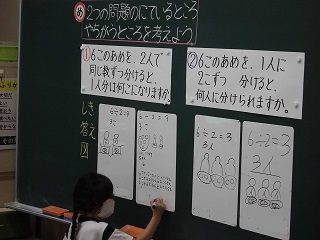 め
2つの問題のにているところ
ちがうところを考えよう。
①6このあめを、2人で
同じ数ずつ分けると、
1人分は何こになりますか。
②6このあめを、1人に
2こずつ 分けると、
何人に分けられますか。
しき
答え
図
6÷2=3
3こ
6÷2=3
3こ
6÷2=3
3人
6÷2=3
3人